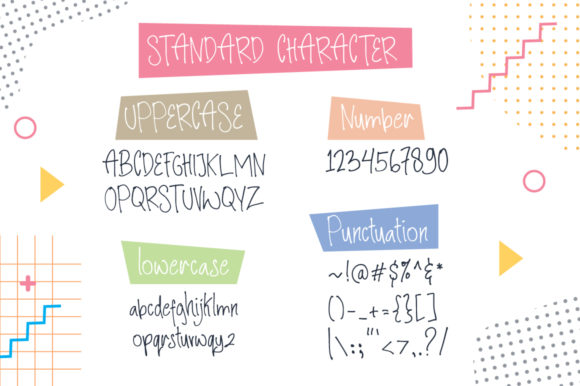 STANDARD CHARACTER
UPPERCASE
ABCDEFGHIJKLMN
OPQRSTUVWQYZ
Number
1234567890
lowercase
abcdefghijklmn
opqrstuvwqyz
Punctuation
~!@#$%^&*
()-_+={}[]
|\:;"'<>,.?/